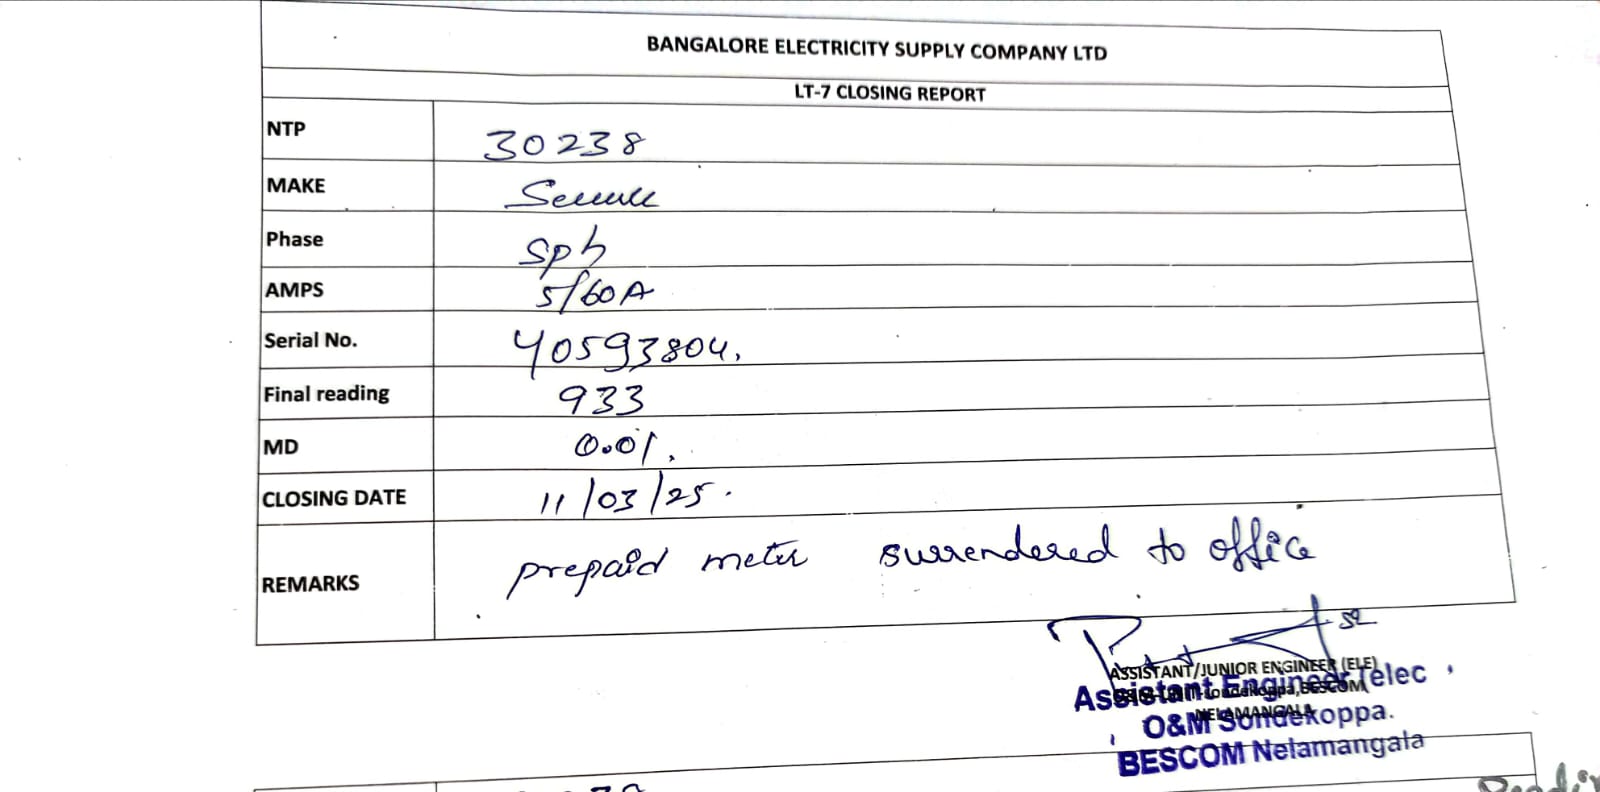 BANGALORE ELECTRICITY SUPPLY COMPANY LTD
LT-7 CLOSING REPORT
NTP 30238
MAKE Secure
Phase Sph
AMPS 5/60A
Serial No. 40593804.
Final reading 933
MD 0.01.
CLOSING DATE 11/03/25.
REMARKS prepaid meter surrendered to office
ASSISTANT/JUNIOR ENGINEER (ELE)
Assistant Engineer (elec
Sondekoppa,BESCOM,
NELAMANGALA
O&M Sondekoppa.
BESCOM Nelamangala